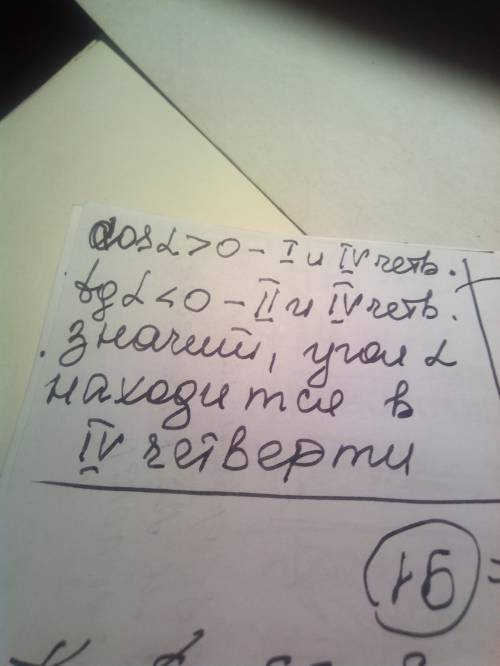 cosα>0 - I и IV четв.
tgα<0 - II и IV четв.
Значит, угол α
находится в
IV четверти